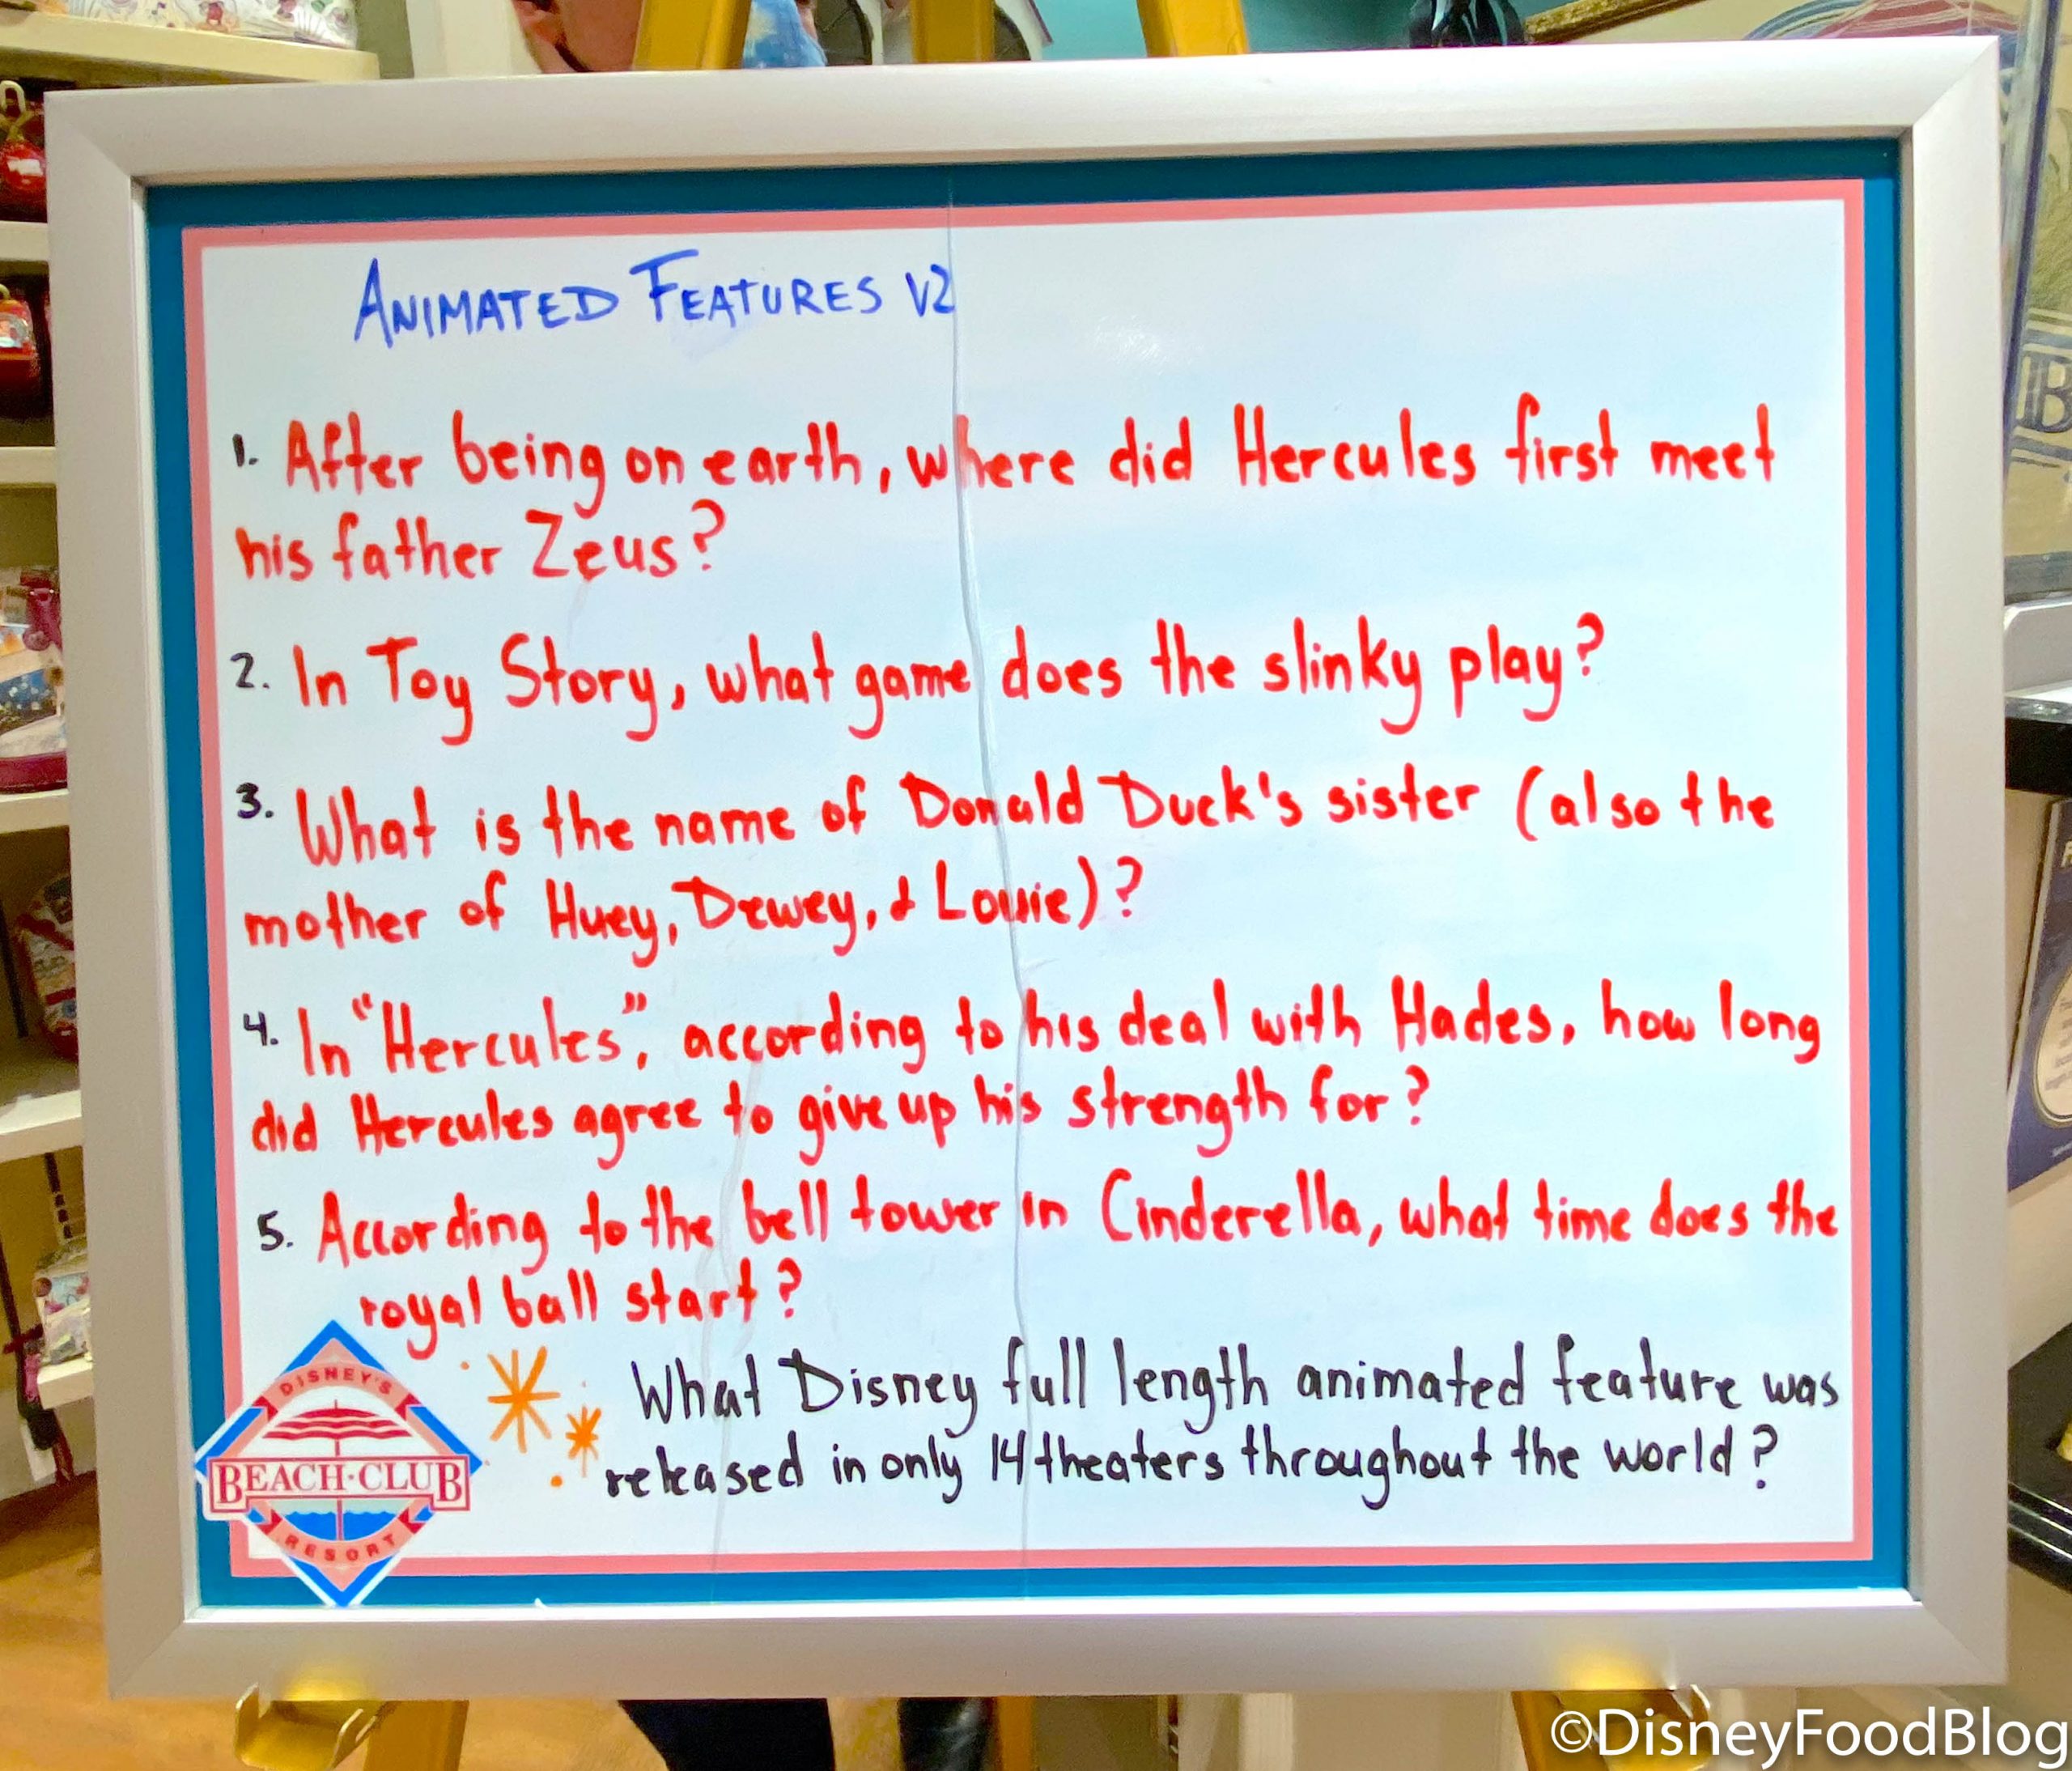 ANIMATED FEATURES V2
1. After being on earth, where did Hercules first meet
his father Zeus?
2. In Toy Story, what game does the slinky play?
3. What is the name of Donald Duck's sister (also the
mother of Huey, Dewey, & Louie)?
4. In "Hercules", according to his deal with Hades, how long
did Hercules agree to give up his strength for?
5. According to the bell tower in Cinderella, what time does the
royal ball start?
What Disney full length animated feature was
released in only 14 theaters throughout the world?
DISNEY'S
BEACH·CLUB
RESORT
©DisneyFoodBlog